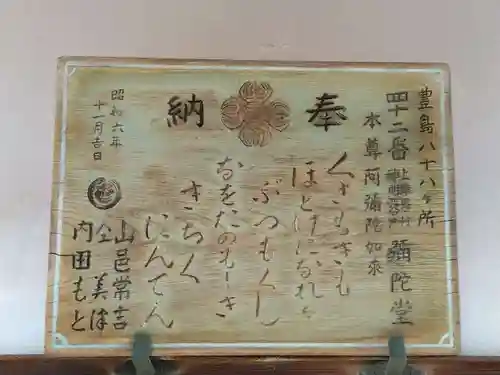 豊島八十八ヶ所
四十二番 彌陀堂
本尊阿彌陀如來
奉納
くさもきも
ほとけになれる
ぶつもくし
なをたのもしき
きちく
にんでん
昭和六年
十一月吉日
山邑常吉
仝 美津
内田もと